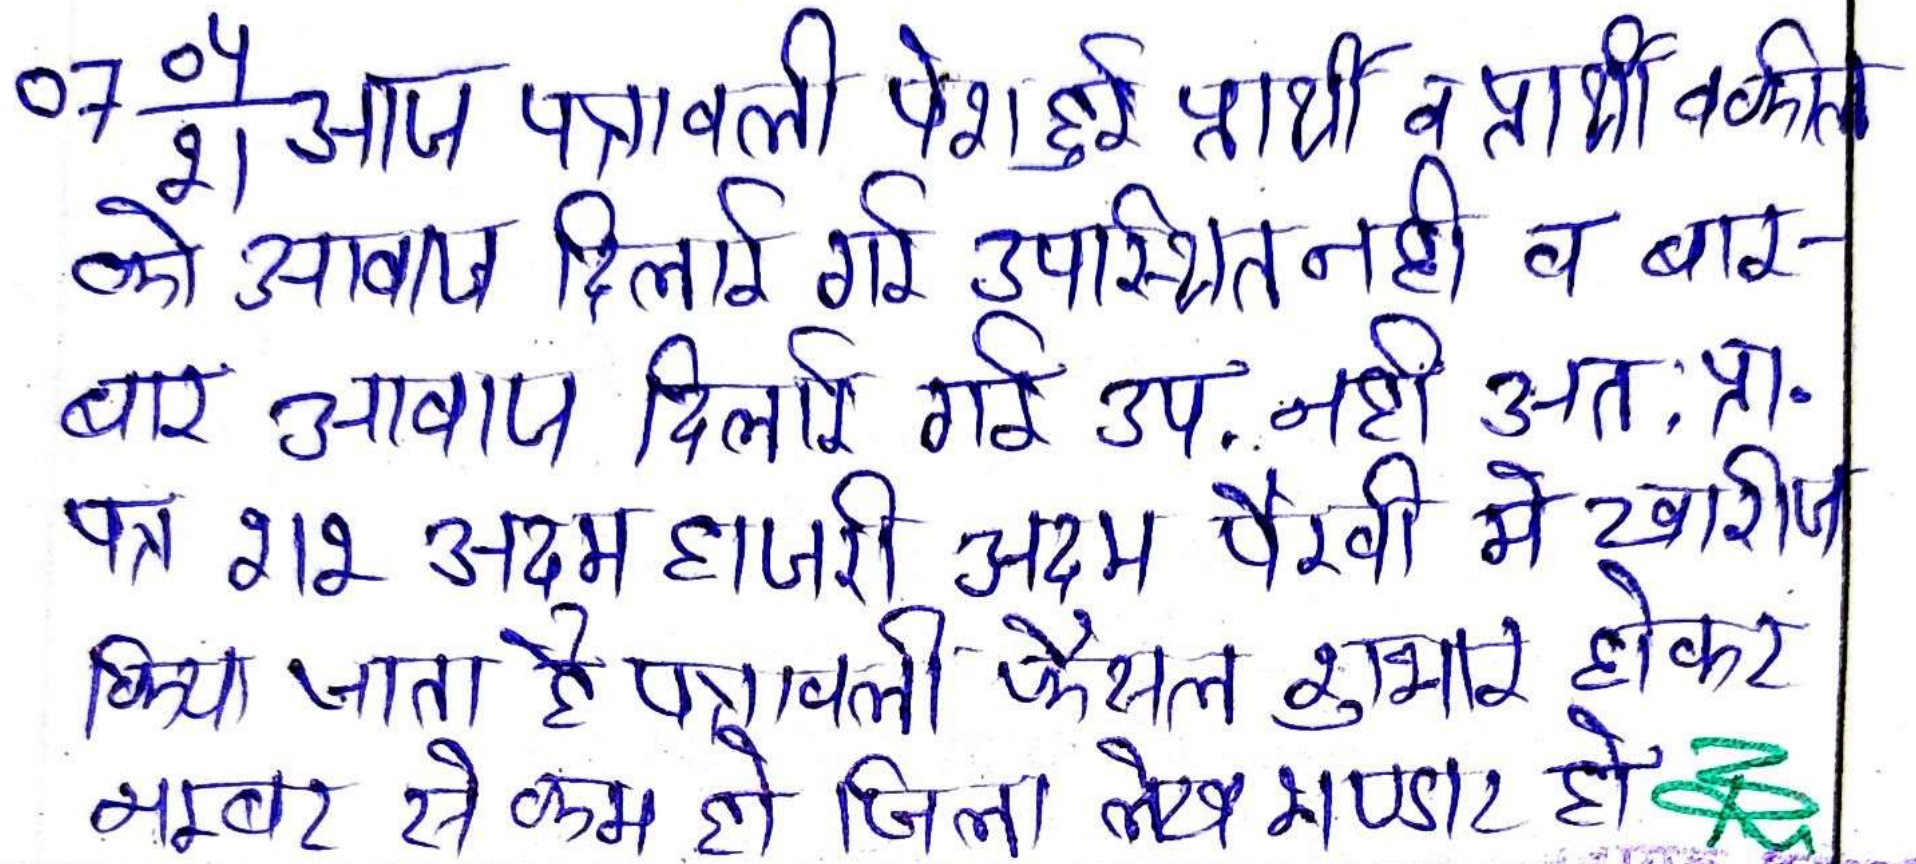 07 04/21 आज पत्रावली पेश हुई प्रार्थी व प्रार्थी वकील
को आवाज दिलाई गई उपास्थित नही व बार-
बार आवाज दिलाई गई उप. नही अत: प्रा.
पत्र 212 अदम हाजरी अदम पैरवी मे खारीज
किया जाता है पत्रावली फैसल शुमार होकर
नम्बर से कम हो जिला लेख भण्डार हो